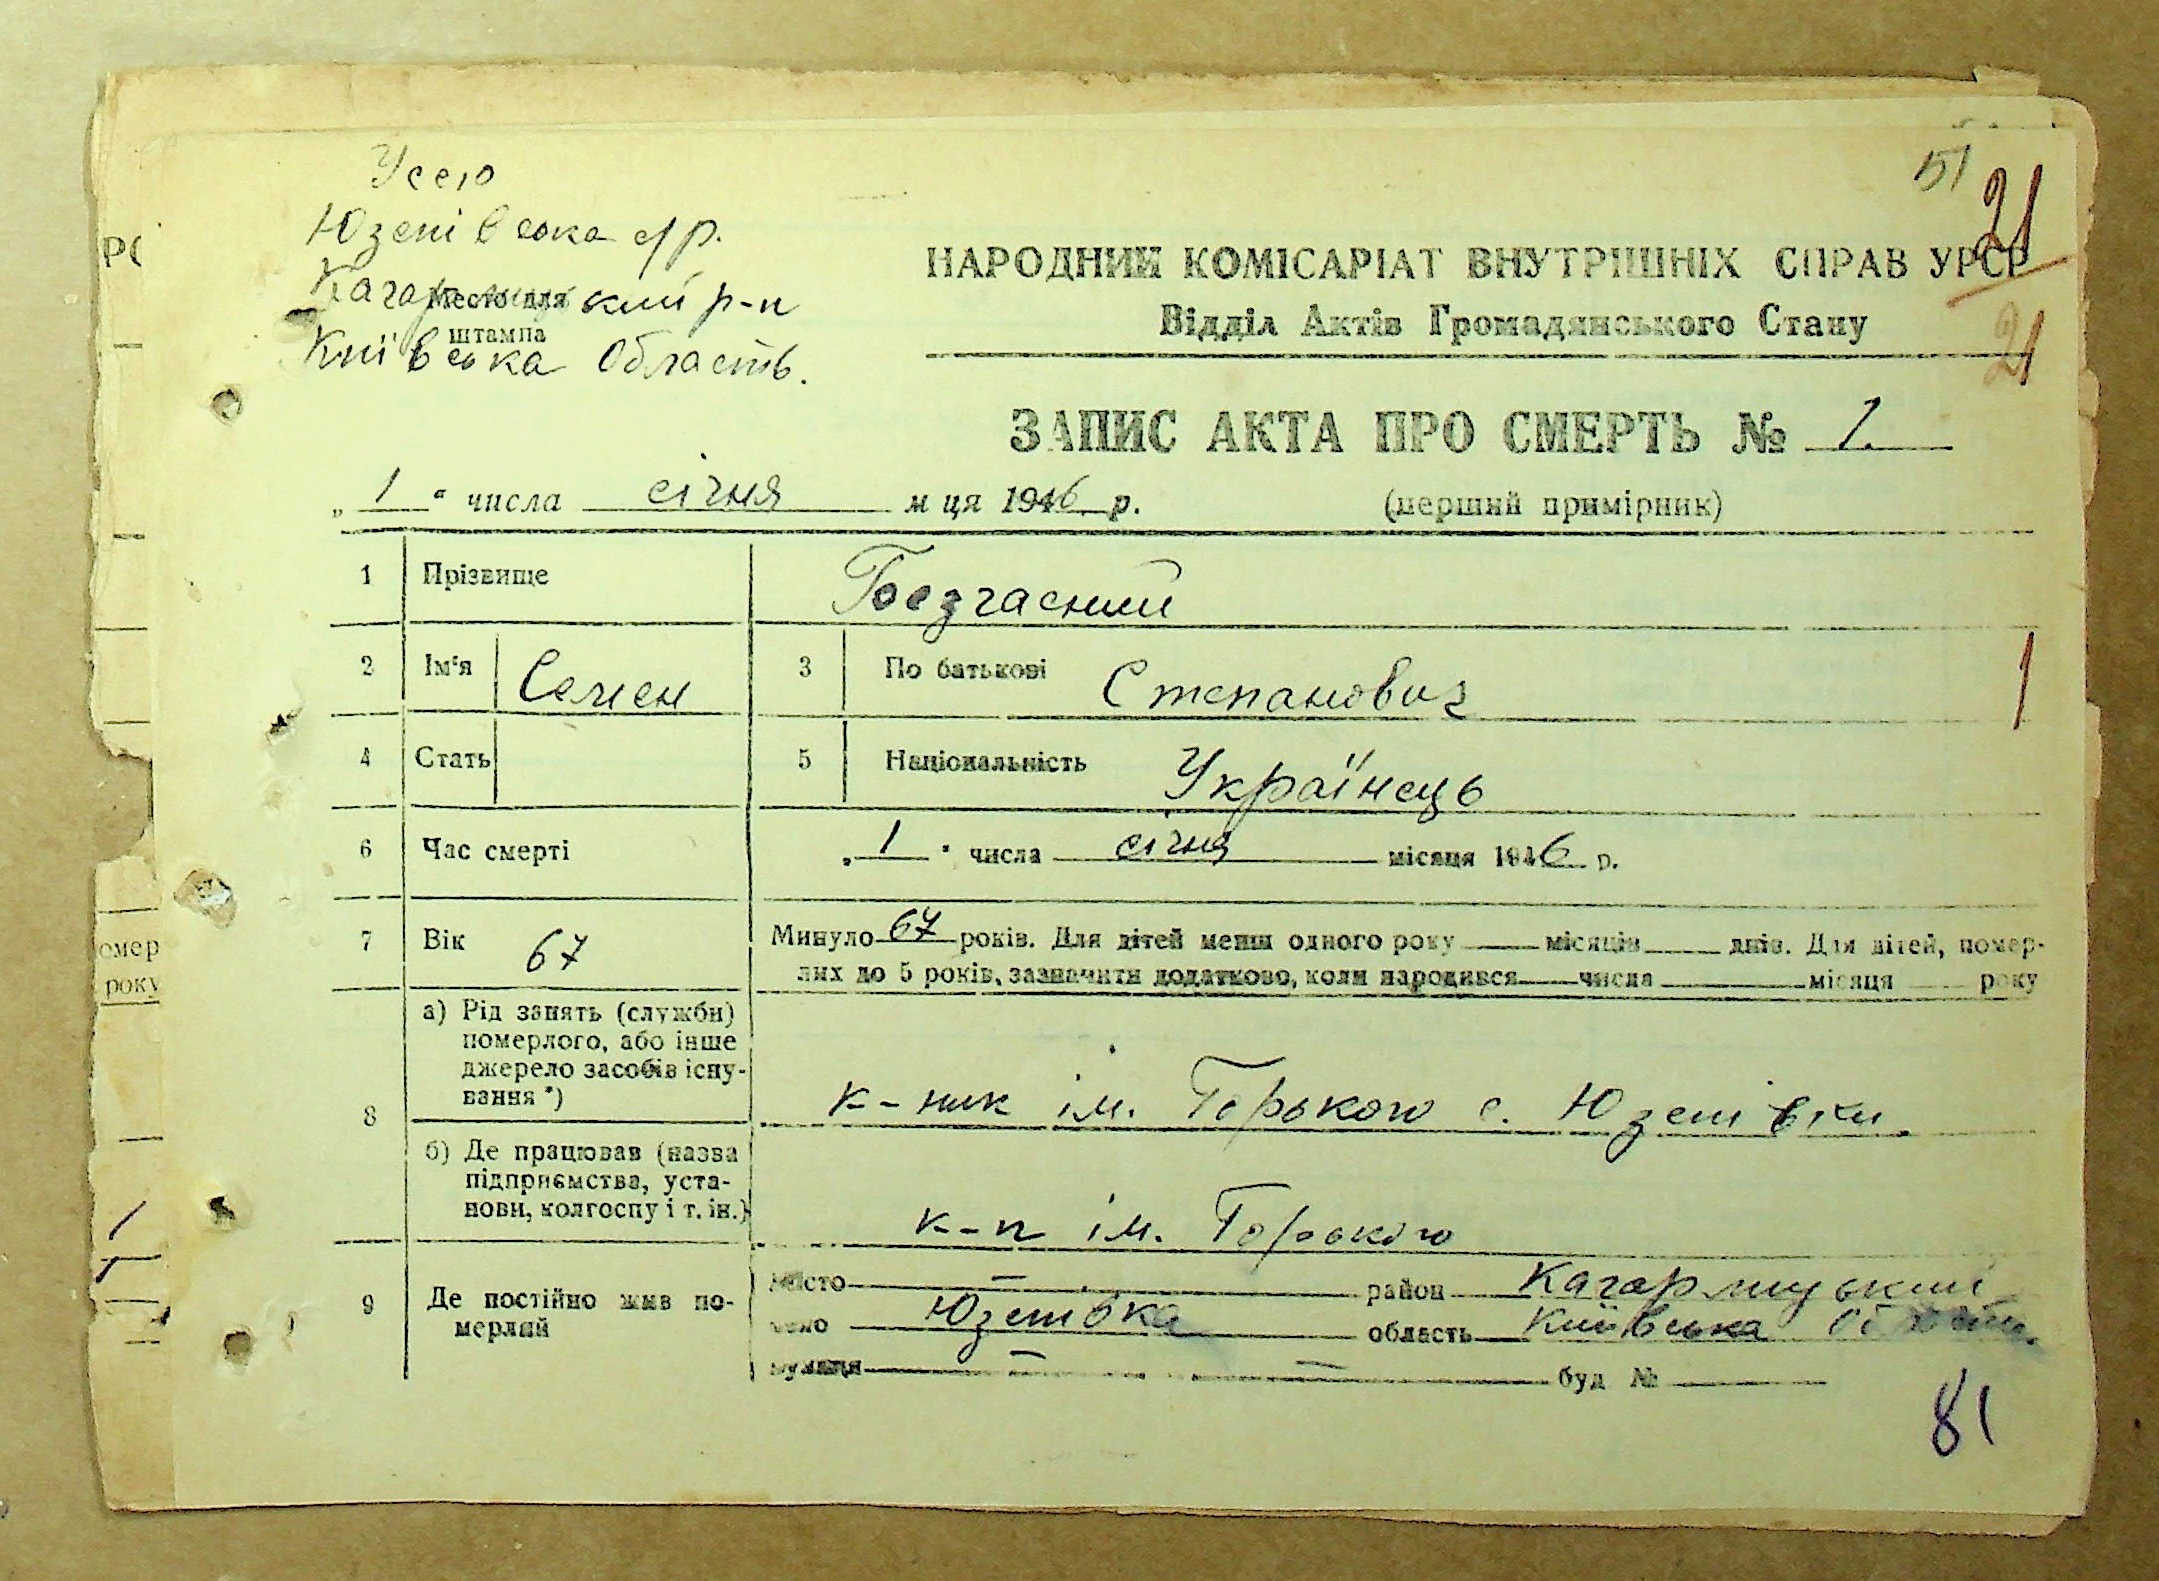 51
21
Усею
Юзепівська с/р.
НАРОДНИЙ КОМІСАРІАТ ВНУТРІШНІХ СПРАВ УРСР
Місто для
штампа
Відділ Актів Громадянського Стану
Київська Область.
21
ЗАПИС АКТА ПРО СМЕРТЬ № 1.
„ 1 “ числа січня м ця 1946 р. (перший примірник)
1 Прізвище Безчасний
2 Ім'я Семен 3 По батькові Степанович
1
4 Стать 5 Національність Українець
6 Час смерті „ 1 “ числа січня місяця 1946 р.
7 Вік 67 Минуло 67 років. Для дітей менш одного року місяців днів. Для дітей, помер-
лих до 5 років, зазначити додатково, коли народився числа місяця року
8 а) Рід занять (служби)
померлого, або інше
джерело засобів існу-
вання *)
к-ник ім. Горького с. Юзепівки.
б) Де працював (назва
підприємства, уста-
нови, колгоспу і т. ін.)
к-п ім. Горького
9 Де постійно жив по-
мерлий
місто — район Кагарлицький
село Юзепівка область Київська
вулиця — — буд №
81
омер
року